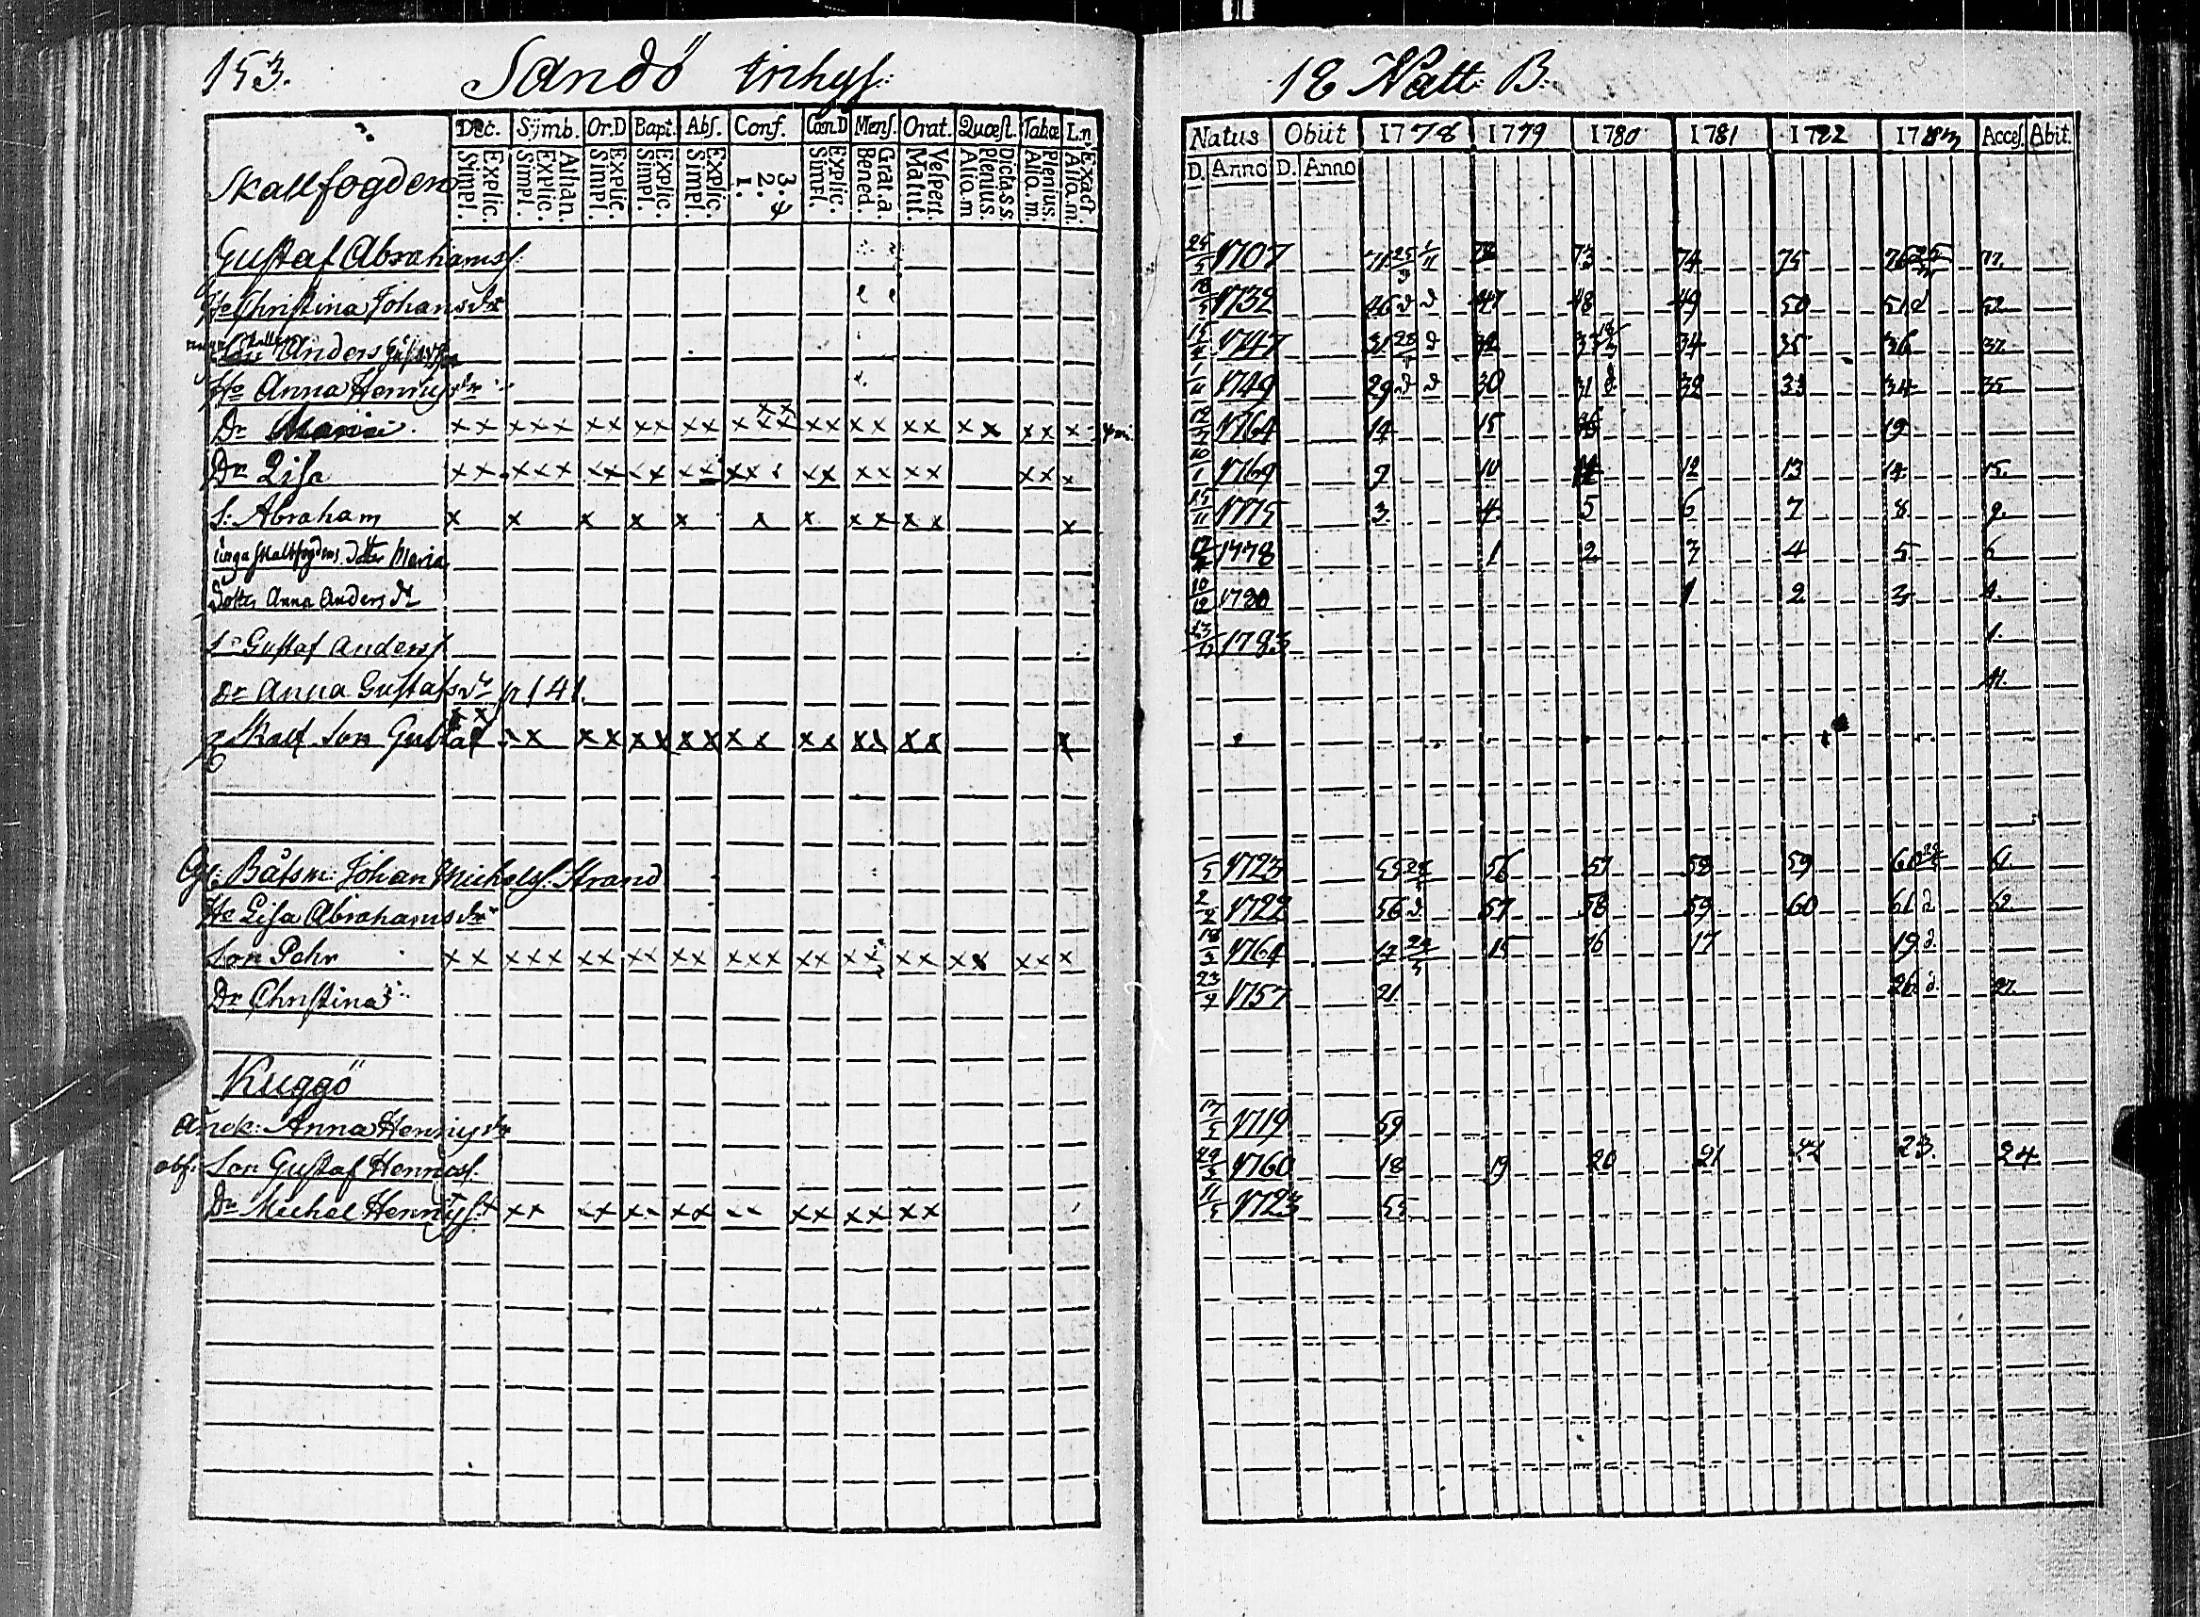 153. Sandö Inhys: 18 Natt B:
Dec. Sijmb. Or.D Bapt. Abs. Conf. Cœn.D Mens. Orat. Quæst. Tabæ L.n. Natus Obiit 1778 1779 1780 1781 1782 1783 Acces. Abit.
Explic. Simpl. Athan. Explic. Simpl. Explic. Simpl. Explic. Simpl. Explic. Simpl. 3. 2. 1. Explic. Simpl. Grat.a. Bened. Vespert. Matut. Dicta.s.s. Plenius. Aliq.m Plenius. Aliq.m. Exact. Aliq.m. D. Anno D. Anno
Skallfogden
Gustaf Abrahamss: 25/5 1707 71 72 73 74 75 76 77.
H:o Christina Johansdr 1732 46 d d 47 48 49 50 51 d 52
Anders 1747 31 32 33 34 35 36 37.
H:o Anna Henrigsdr 1749 29 d d 30 31 32 33 34 35
Dr Maria x x x x x x x x x x x x x x x x x x x x x x x x x 1764 14 15 19
Dr Lisa x x x x x x x x x x x x x x x x x x x x x x 1769 9 10 11 12 13 14 15.
S: Abraham x x x x x x x x x x x x 15/11 1775 3 4 5 6 7 8 9.
unga skallfogdens dotter Maria 1778 1 2 3 4 5 6
Dotter Anna Anders dr 10/12 1780 1 2 3 4.
S: Gustaf Anderss 1783 1.
Dr Anna Gustafsdr p 141.
Skallf. Son Gustaf x x x x x x x x x x x x x x x x x
Gl: Båtsm: Johan Michelss: Strand 1723 55 56 57 58 59 60 61
H:o Lisa Abrahamsdr 1722 56 d. 57 58 59 60 61 d 62
Son Pehr x x x x x x x x x x x x x x x x x x x x x x x x x 1764 15 16 17 19 d.
Dr Christina 23/7 1757 21 26 d. 27
Kuggö
Änck: Anna Henrigsdr 17/5 1719 59
Son Gustaf Henricss. 1760 18 19 20 21 22 23. 24
Dr Michel Henrigss x x x x x x x x x x x x x x x x x 11/5 1723 55